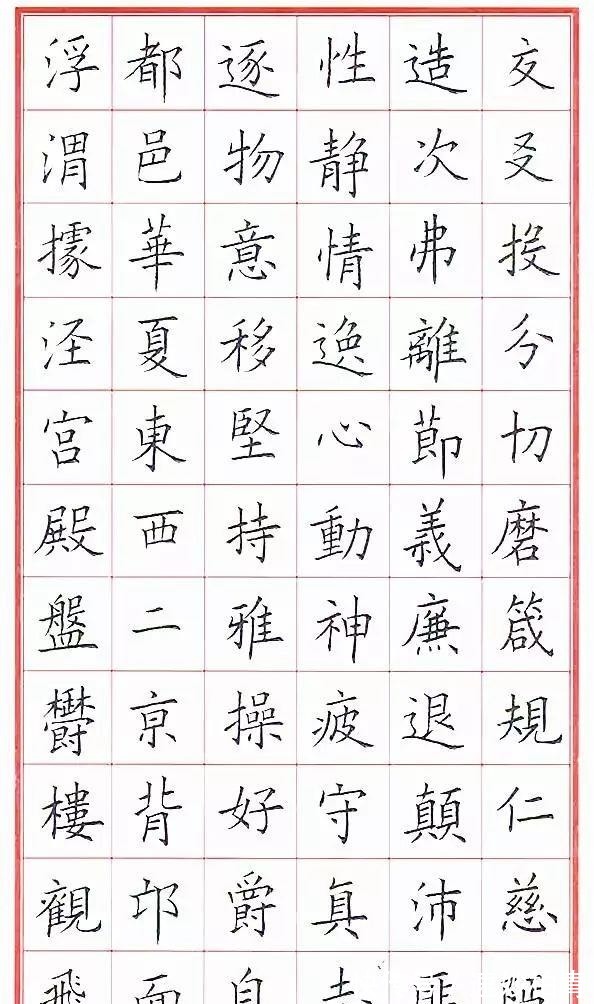 交友投分切磨箴規仁慈
造次弗離節義廉退顛沛匪
性静情逸心動神疲守真志
逐物意移堅持雅操好爵自
都邑華夏東西二亰背邙面
浮渭據泾宫殿盤欝樓觀飛